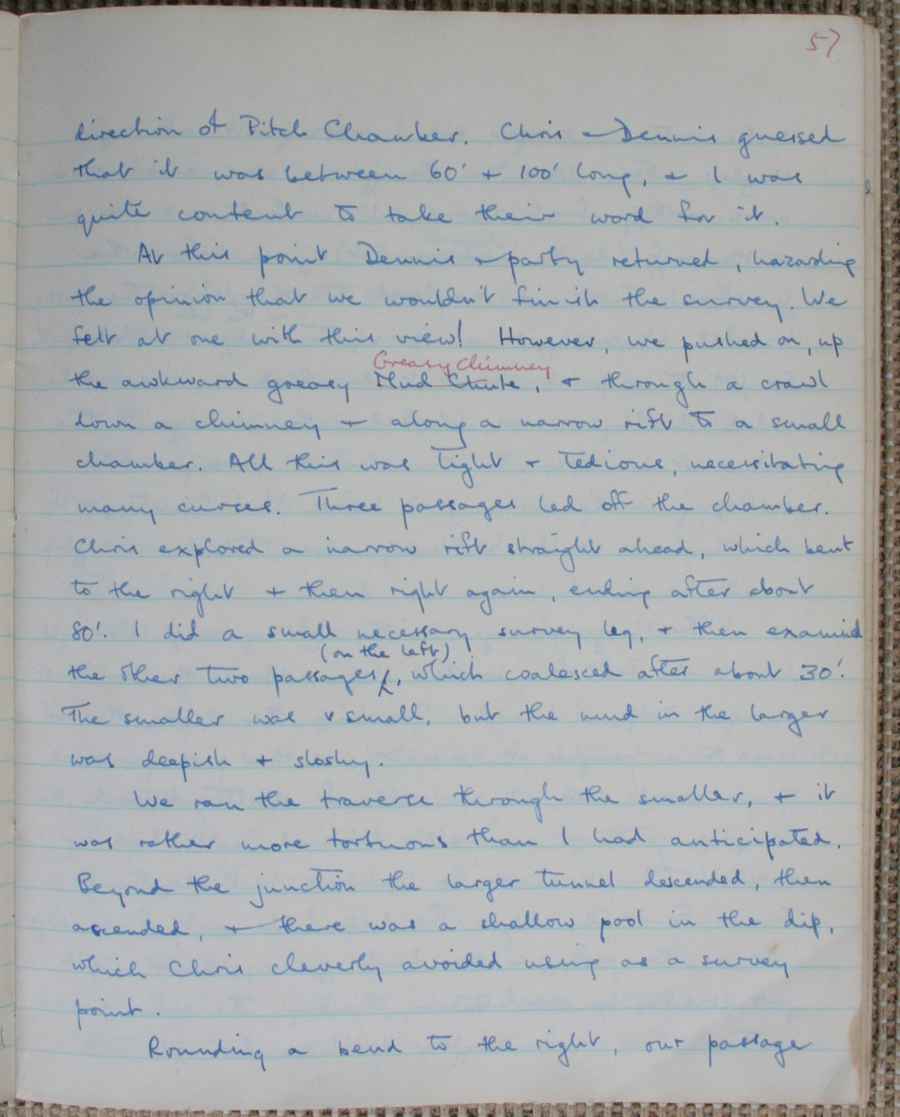 57
direction of Pitch Chamber. Chris & Dennis guessed
that it was between 60' & 100' long, & I was
quite content to take their word for it.
At this point Dennis & party returned, hazarding
the opinion that we wouldn't finish the survey. We
felt at one with this view! However, we pushed on, up
Greasy Chimney
the awkward greasy Mud Chute, & through a crawl
down a chimney & along a narrow rift to a small
chamber. All this was tight & tedious, necessitating
many curses. Three passages led off the chamber.
Chris explored a narrow rift straight ahead, which bent
to the right & then right again, ending after about
80'. I did a small necessary survey leg, & then examined
(on the left)
the other two passages, which coalesced after about 30'.
The smaller was v small, but the mud in the larger
was deepish & sloshy.
We ran the traverse through the smaller, & it
was rather more tortuous than I had anticipated.
Beyond the junction the larger tunnel descended, then
ascended, & there was a shallow pool in the dip,
which Chris cleverly avoided using as a survey
point.
Rounding a bend to the right, our passage